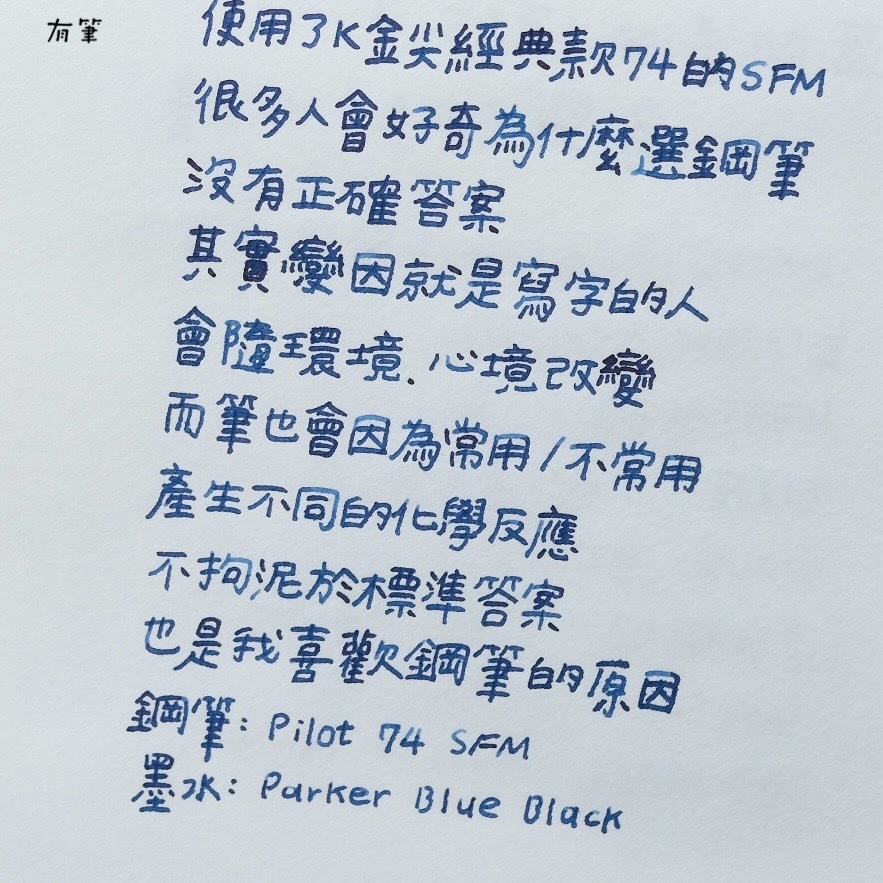 有筆
使用了K金尖經典款74的SFM
很多人會好奇為什麼選鋼筆
沒有正確答案
其實變因就是寫字的人
會隨環境.心境改變
而筆也會因為常用/不常用
產生不同的化學反應
不拘泥於標準答案
也是我喜歡鋼筆的原因
鋼筆：Pilot 74 SFM
墨水：Parker Blue Black